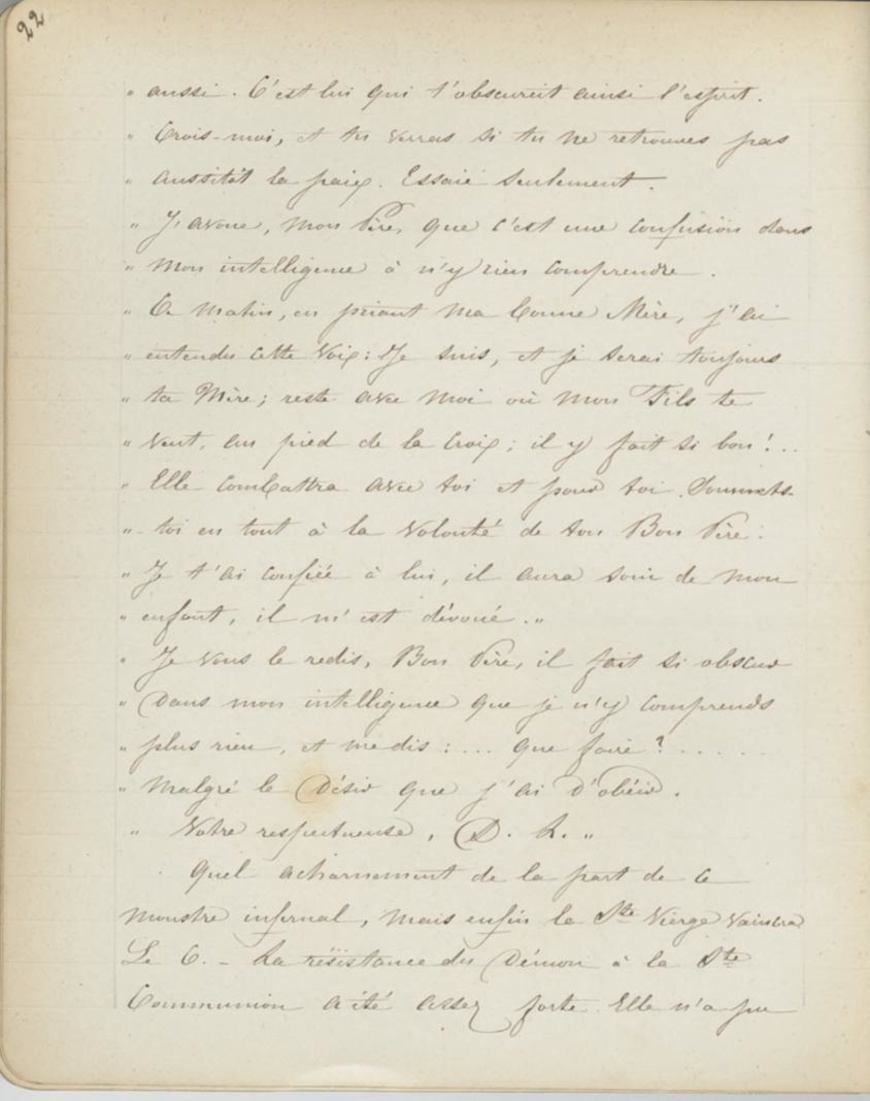 22
" aussi. C'est lui qui t'obscurcit ainsi l'esprit.
" Crois-moi, et tu verras si tu ne retrouves pas
" aussitôt la paix. Essaie seulement.
" J'avoue, mon Père, que c'est une confusion dans
" mon intelligence à n'y rien comprendre.
" Ce matin, en priant ma bonne Mère, j'ai
" entendu cette voix: Je suis, et je serai toujours
" ta Mère; reste avec moi où mon Fils te
" veut, au pied de la Croix; il y fait si bon!..
" Elle combattra avec toi et pour toi. Soumets-
" toi en tout à la volonté de ton Bon Père.
" Je t'ai confiée à lui, il aura soin de mon
" enfant, il m'est dévoué."
" Je vous le redis, Bon Père, il fait si obscur
" Dans mon intelligence que je n'y comprends
" plus rien, et me dis:... que faire?.....
" Malgré le Désir que j'ai d'obéir.
" Votre respectueuse, D. R. "
Quel acharnement de la part de ce
monstre infernal, mais enfin la Ste Vierge vaincra
Le 6. - La résistance du Démon à la Ste
Communion a été assez forte. Elle n'a pu